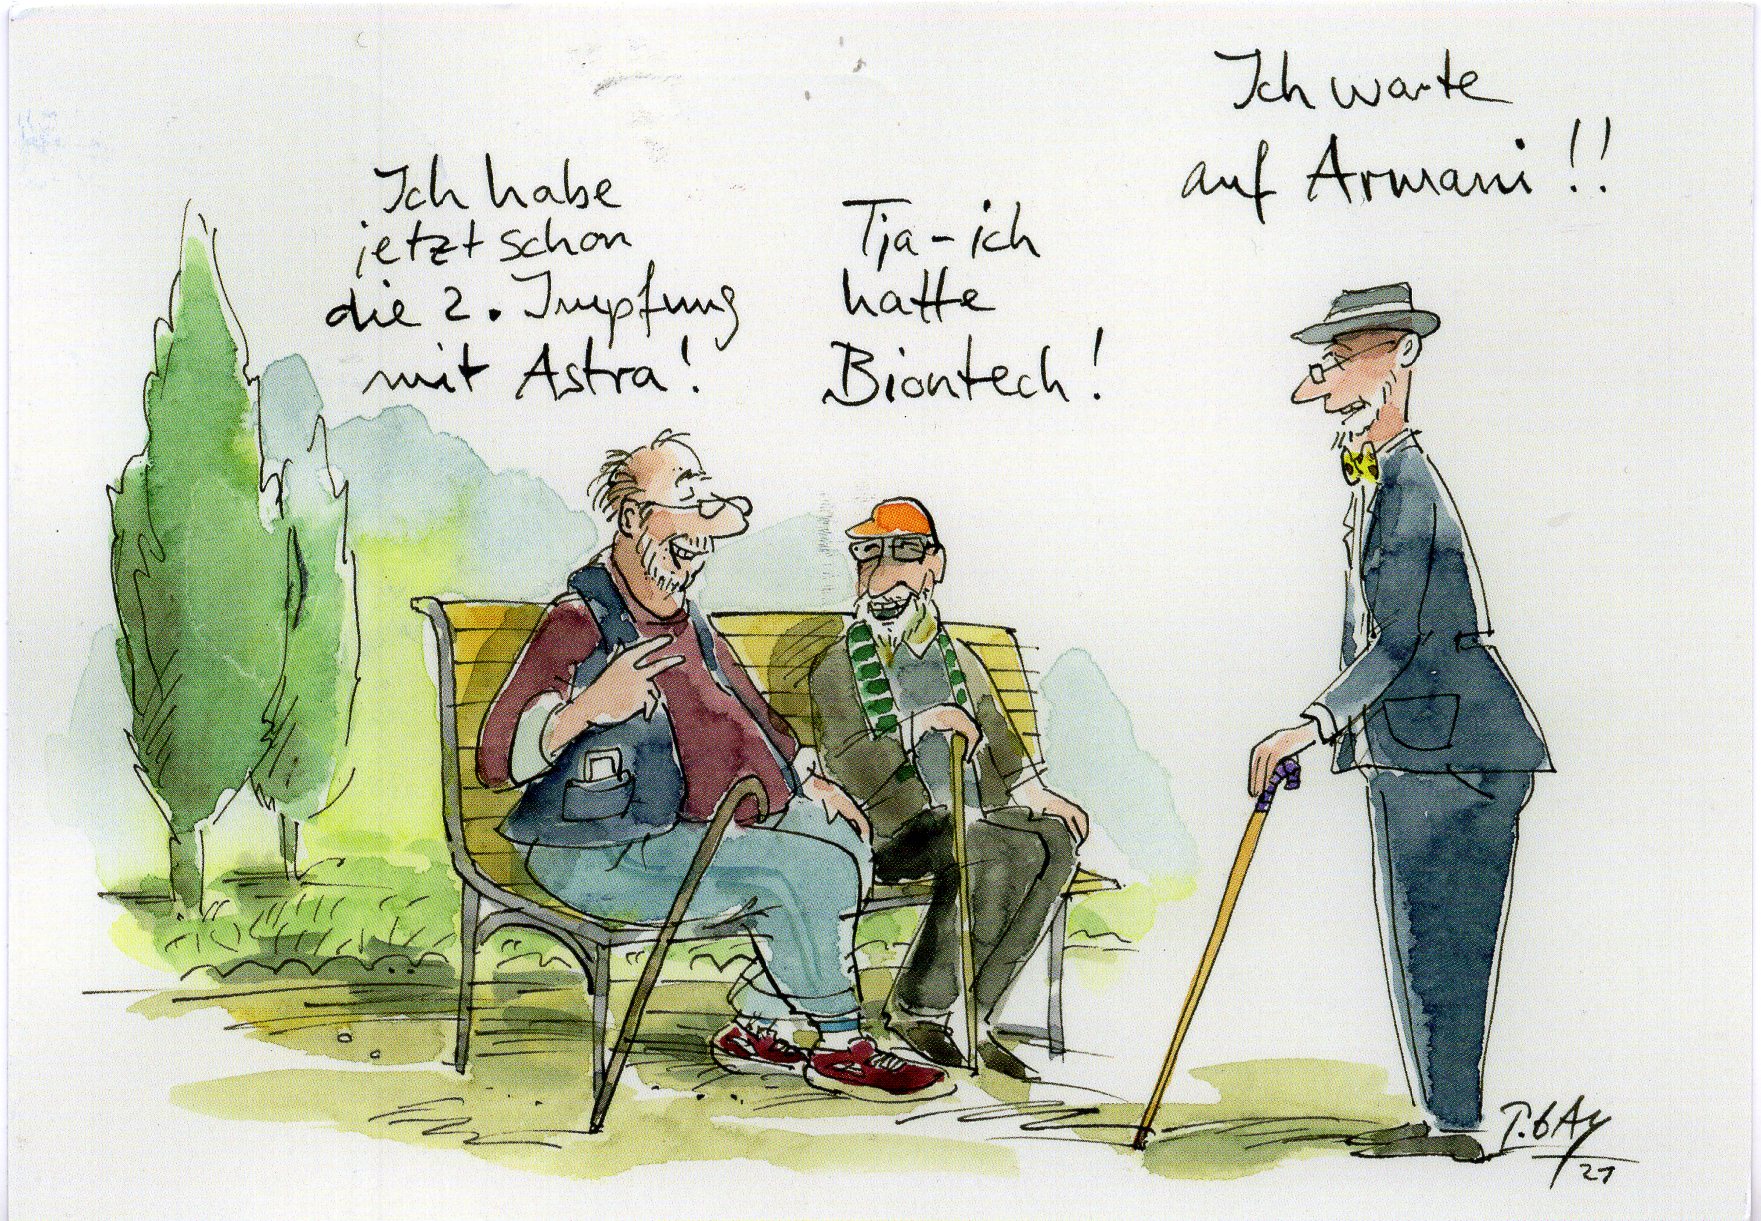 Ich habe
jetzt schon
die 2. Impfung
mit Astra!
Tja - ich
hatte
Biontech!
Ich warte
auf Armani!!
T. bAy
21